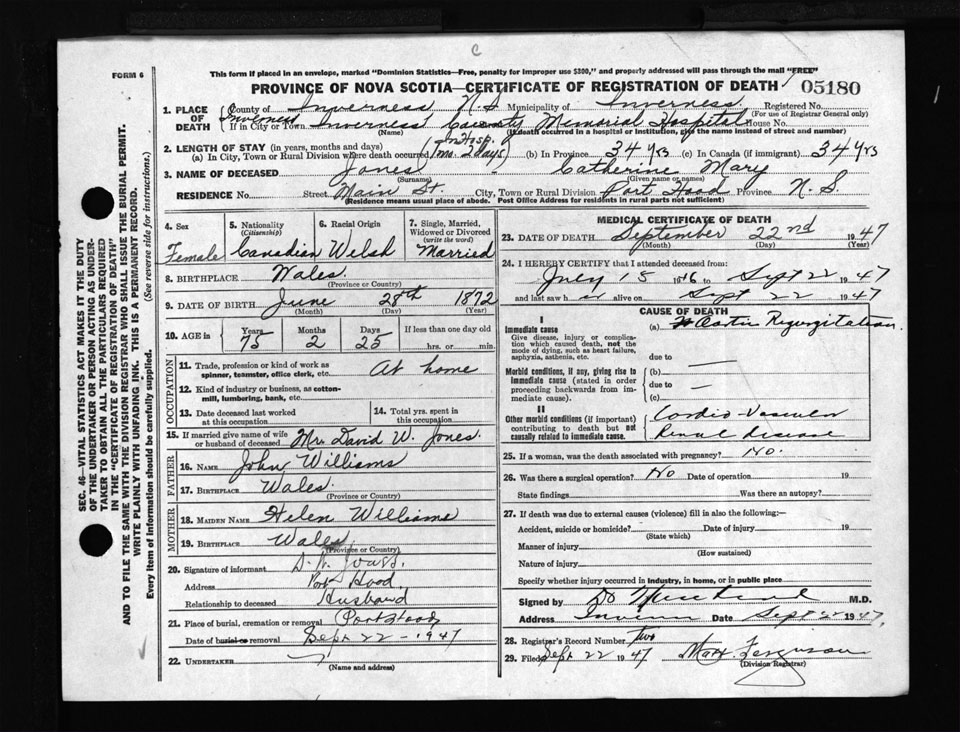 C
FORM 6
This form if placed in an envelope, marked "Dominion Statistics—Free, penalty for improper use $300," and properly addressed will pass through the mail "FREE"
PROVINCE OF NOVA SCOTIA—CERTIFICATE OF REGISTRATION OF DEATH
05180
SEC. 46—VITAL STATISTICS ACT MAKES IT THE DUTY
OF THE UNDERTAKER OR PERSON ACTING AS UNDER-
TAKER TO OBTAIN ALL THE PARTICULARS REQUIRED
IN THE "CERTIFICATE OF REGISTRATION OF DEATH"
AND TO FILE THE SAME WITH THE DIVISION REGISTRAR WHO SHALL ISSUE THE BURIAL PERMIT.
WRITE PLAINLY WITH UNFADING INK. THIS IS A PERMANENT RECORD.
Every item of information should be carefully supplied. (See reverse side for instructions.)
1. PLACE OF DEATH County of Inverness N.S Municipality of Inverness. Registered No.
(For use of Registrar General only)
Inverness If in City or Town Inverness County Memorial Hospital House No.
(Name) (If death occurred in a hospital or institution, give the name instead of street and number)
2. LENGTH OF STAY (in years, months and days) In Hosp.
(a) In City, Town or Rural Division where death occurred 1 mo. 2 days (b) In Province 34 yrs (c) In Canada (if immigrant) 34 yrs
3. NAME OF DECEASED Jones - Catherine Mary
(Surname) (Given name or names)
RESIDENCE No. Street Main St. City, Town or Rural Division Port Hood Province N. S.
(Residence means usual place of abode. Post Office Address for residents in rural parts not sufficient)
4. Sex 5. Nationality (Citizenship) 6. Racial Origin 7. Single, Married, Widowed or Divorced (write the word)
Female Canadian Welsh Married
8. BIRTHPLACE Wales.
(Province or Country)
9. DATE OF BIRTH June 28th 1872
(Month) (Day) (Year)
10. AGE in Years Months Days If less than one day old
75 2 25 hrs. or min.
OCCUPATION
11. Trade, profession or kind of work as spinner, teamster, office clerk, etc. At home
12. Kind of industry or business, as cotton-mill, lumbering, bank, etc.
13. Date deceased last worked at this occupation 14. Total yrs. spent in this occupation
15. If married give name of wife or husband of deceased Mr. David W. Jones.
FATHER
16. NAME John Williams
17. BIRTHPLACE Wales.
(Province or Country)
MOTHER
18. MAIDEN NAME Helen Williams
19. BIRTHPLACE Wales
(Province or Country)
20. Signature of informant D. W. Jones.
Address Port Hood.
Relationship to deceased Husband
21. Place of burial, cremation or removal Port Hood
Date of burial or removal Sept 22 - 1947
22. UNDERTAKER
(Name and address)
MEDICAL CERTIFICATE OF DEATH
23. DATE OF DEATH September 22nd 1947
(Month) (Day) (Year)
24. I HEREBY CERTIFY that I attended deceased from:
July 15 1946 to Sept 22 1947
and last saw her alive on Sept 22 1947
CAUSE OF DEATH
I
Immediate cause (a) Aortic Regurgitation.
Give disease, injury or complication which caused death, not the mode of dying, such as heart failure, asphyxia, asthenia, etc.
due to —
Morbid conditions, if any, giving rise to immediate cause (stated in order proceeding backwards from immediate cause).
(b) —
due to —
(c)
II
Other morbid conditions (if important) contributing to death but not causally related to immediate cause.
Cardio-Vascular
Renal disease
25. If a woman, was the death associated with pregnancy? No.
26. Was there a surgical operation? No Date of operation 19
State findings Was there an autopsy?
27. If death was due to external causes (violence) fill in also the following:—
Accident, suicide or homicide? Date of injury 19
(State which)
Manner of injury
(How sustained)
Nature of injury
Specify whether injury occurred in industry, in home, or in public place
Signed by M.D.
Address Date Sept 22 1947.
28. Registrar's Record Number Two
29. Filed Sept 22 1947 Ferguson
(Division Registrar)